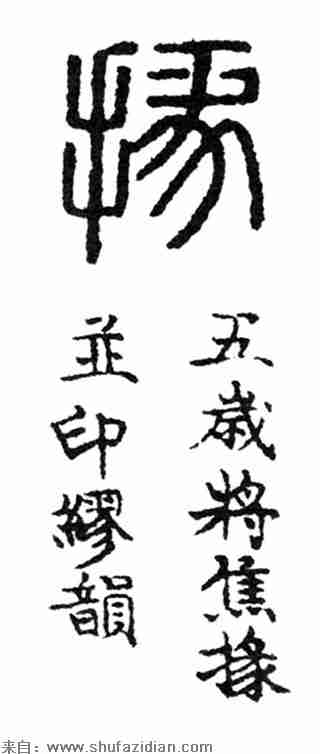 掾
五歲將焦掾
並印繆韻
来自：www.shufazidian.com